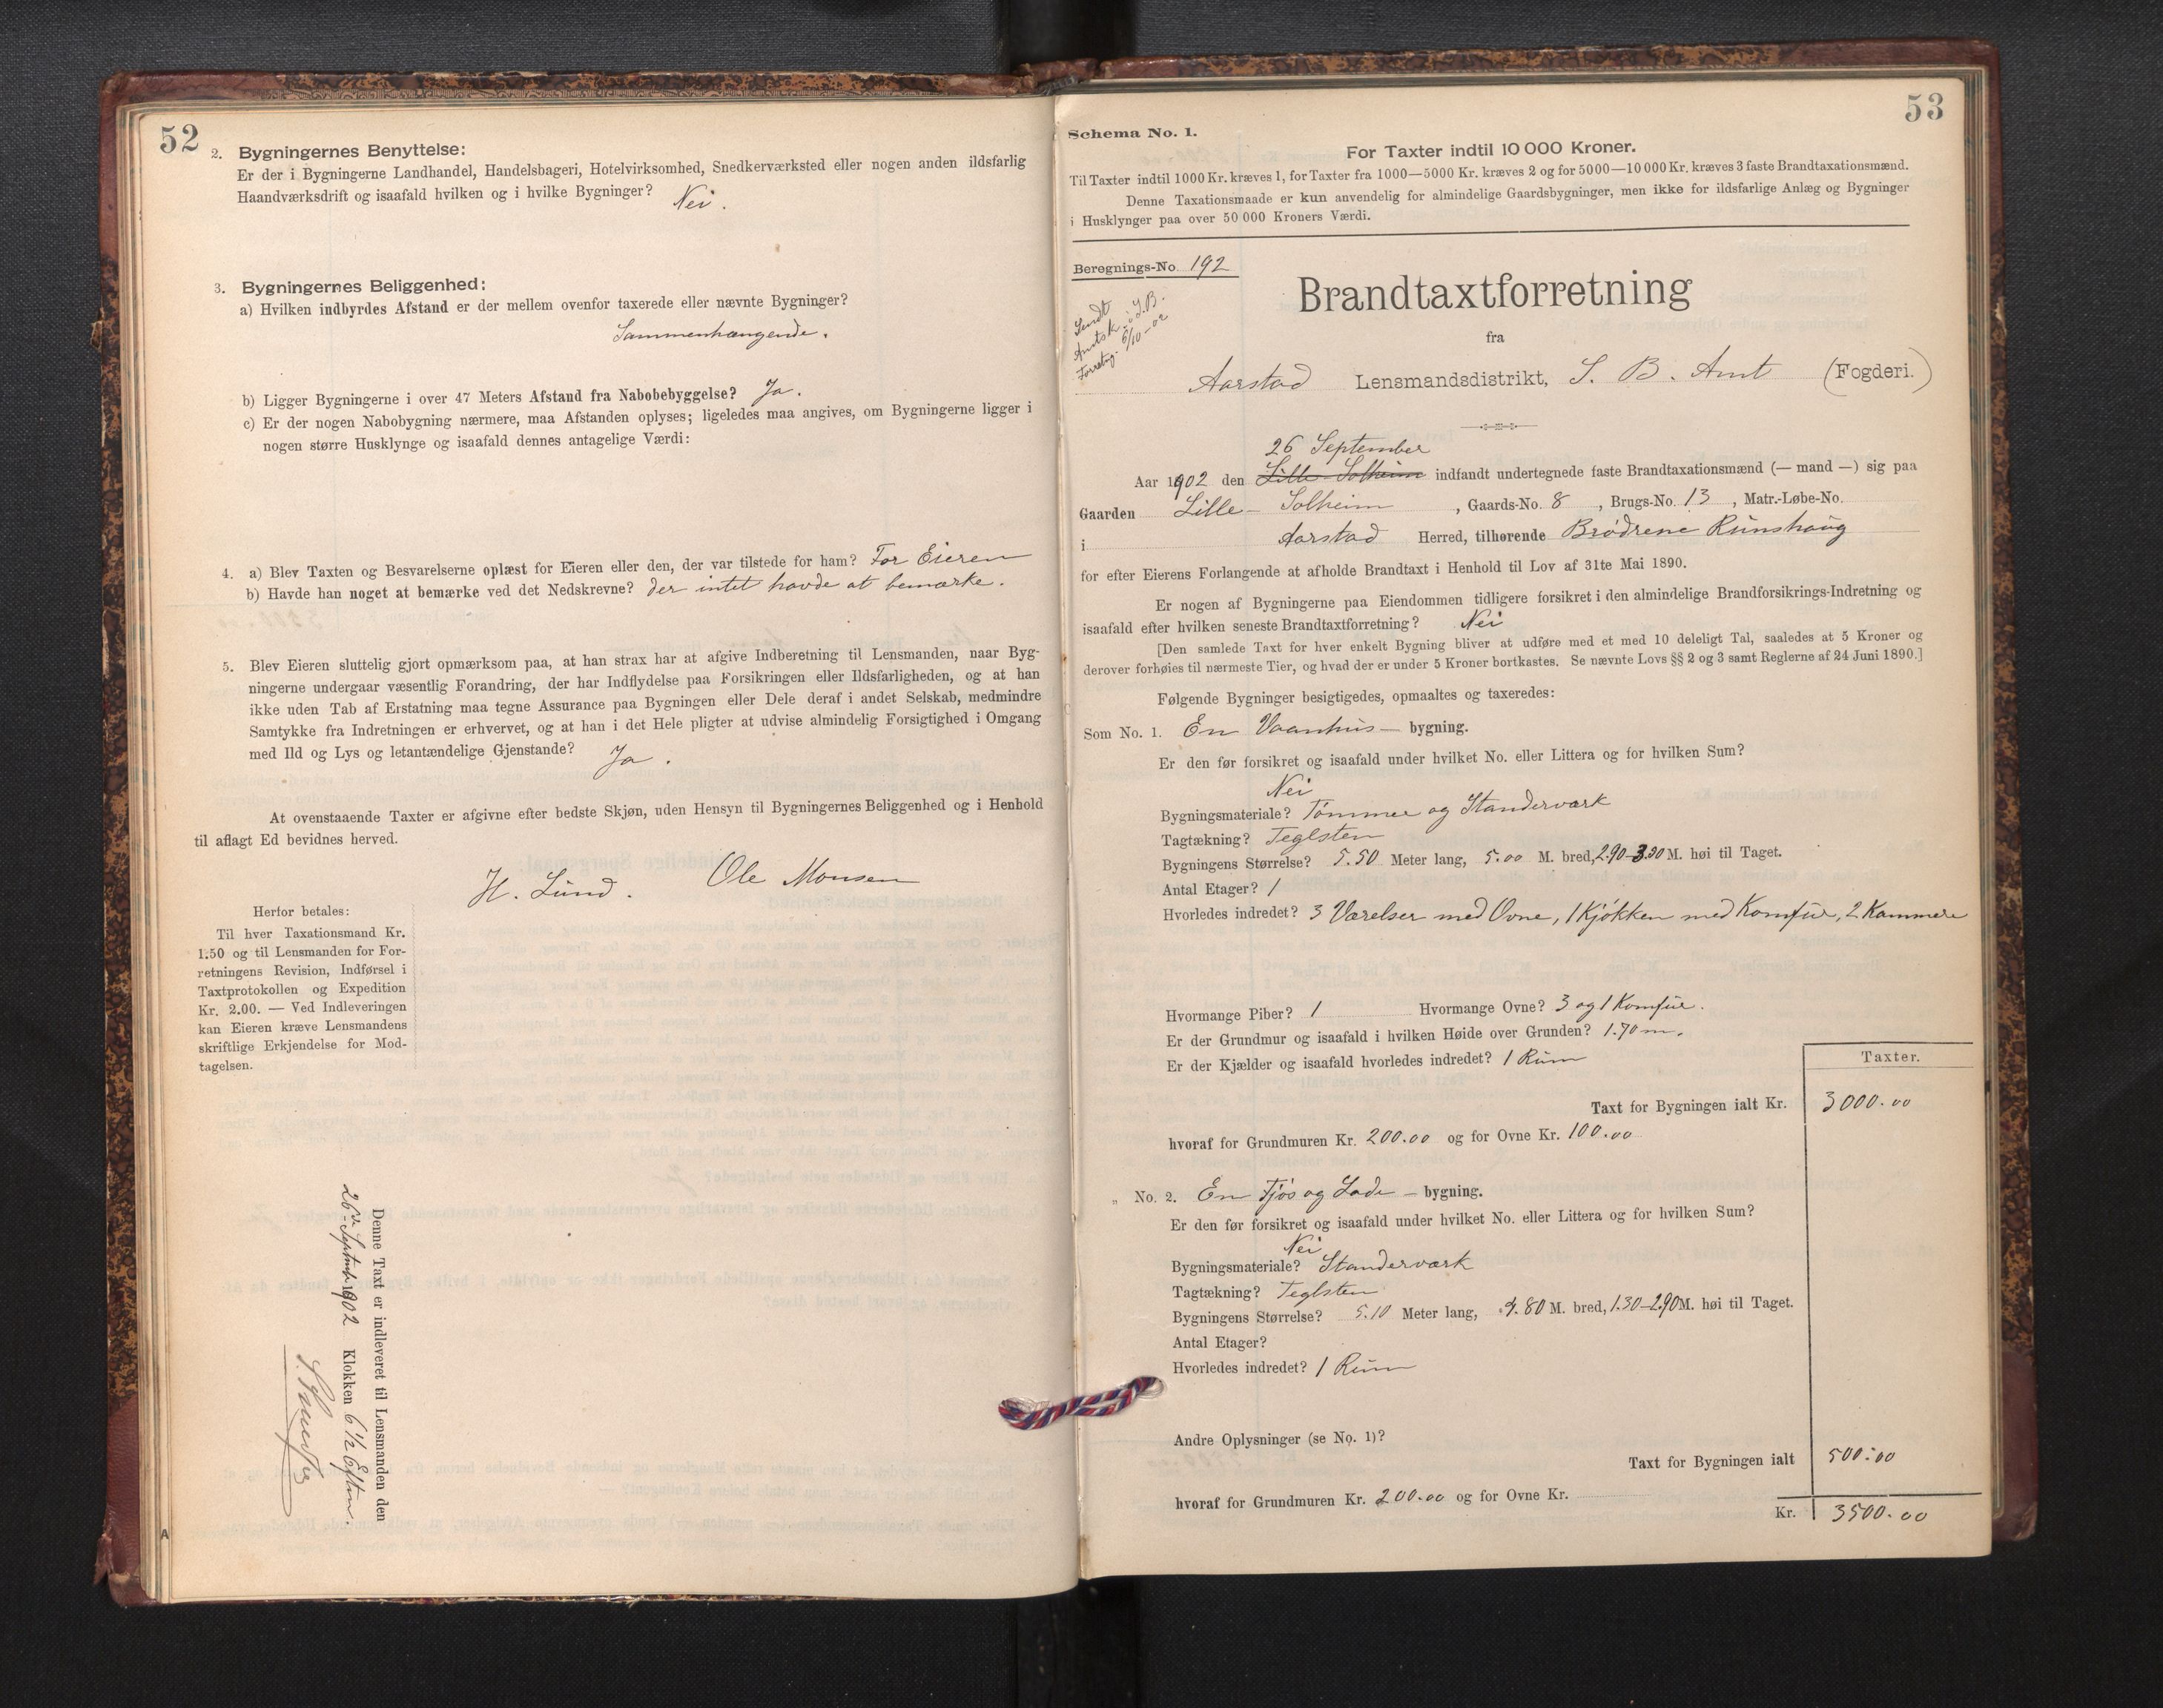 52
2. Bygningernes Benyttelse:
Er der i Bygningerne Landhandel, Handelsbageri, Hotelvirksomhed, Snedkerværksted eller nogen anden ildsfarlig
Haandværksdrift og isaafald hvilken og i hvilke Bygninger? Nei.
3. Bygningernes Beliggenhed:
a) Hvilken indbyrdes Afstand er der mellem ovenfor taxerede eller nævnte Bygninger?
Sammenhængende.
b) Ligger Bygningerne i over 47 Meters Afstand fra Nabobebyggelse? Ja.
c) Er der nogen Nabobygning nærmere, maa Afstanden oplyses; ligeledes maa angives, om Bygningerne ligger i
nogen større Husklynge og isaafald dennes antagelige Værdi:
4. a) Blev Taxten og Besvarelserne oplæst for Eieren eller den, der var tilstede for ham? For Eieren
b) Havde han noget at bemærke ved det Nedskrevne? der intet havde at bemærke.
5. Blev Eieren sluttelig gjort opmærksom paa, at han strax har at afgive Indberetning til Lensmanden, naar Byg-
ningerne undergaar væsentlig Forandring, der har Indflydelse paa Forsikringen eller Ildsfarligheden, og at han
ikke uden Tab af Erstatning maa tegne Assurance paa Bygningen eller Dele deraf i andet Selskab, medmindre
Samtykke fra Indretningen er erhvervet, og at han i det Hele pligter at udvise almindelig Forsigtighed i Omgang
med Ild og Lys og letantændelige Gjenstande? Ja.
At ovenstaaende Taxter er afgivne efter bedste Skjøn, uden Hensyn til Bygningernes Beliggenhed og i Henhold
til aflagt Ed bevidnes herved.
H. Lund. Ole Monsen
Herfor betales:
Til hver Taxationsmand Kr.
1.50 og til Lensmanden for For-
retningens Revision, Indførsel i
Taxtprotokollen og Expedition
Kr. 2.00. — Ved Indleveringen
kan Eieren kræve Lensmandens
skriftlige Erkjendelse for Mod-
tagelsen.
Denne Taxt er indleveret til Lensmanden den
26de Septemb 1902 Klokken 6 1/2 Eftm.
A
53
Schema No. 1.
For Taxter indtil 10 000 Kroner.
Til Taxter indtil 1000 Kr. kræves 1, for Taxter fra 1000—5000 Kr. kræves 2 og for 5000—10 000 Kr. kræves 3 faste Brandtaxationsmænd.
Denne Taxationsmaade er kun anvendelig for almindelige Gaardsbygninger, men ikke for ildsfarlige Anlæg og Bygninger
i Husklynger paa over 50 000 Kroners Værdi.
Beregnings-No. 192
Sendt
Amtsk. i S.B.
Forretng. 6/10-02
Brandtaxtforretning
fra
Aarstad Lensmandsdistrikt, S. B. Amt (Fogderi.)
26 September
Aar 1902 den Lille Solheim indfandt undertegnede faste Brandtaxationsmænd (— mand —) sig paa
Gaarden Lille-Solheim, Gaards-No. 8, Brugs-No. 13, Matr.-Løbe-No.
i Aarstad Herred, tilhørende Brødrene Runshaug
for efter Eierens Forlangende at afholde Brandtaxt i Henhold til Lov af 31te Mai 1890.
Er nogen af Bygningerne paa Eiendommen tidligere forsikret i den almindelige Brandforsikrings-Indretning og
isaafald efter hvilken seneste Brandtaxtforretning? Nei
[Den samlede Taxt for hver enkelt Bygning bliver at udføre med et med 10 deleligt Tal, saaledes at 5 Kroner og
derover forhøies til nærmeste Tier, og hvad der er under 5 Kroner bortkastes. Se nævnte Lovs §§ 2 og 3 samt Reglerne af 24 Juni 1890.]
Følgende Bygninger besigtigedes, opmaaltes og taxeredes:
Som No. 1. En Vaanhus — bygning.
Er den før forsikret og isaafald under hvilket No. eller Littera og for hvilken Sum?
Nei
Bygningsmateriale? Tømmer og Standerværk
Tagtækning? Teglsten
Bygningens Størrelse? 5.50 Meter lang, 5.00 M. bred, 2.90-3.30 M. høi til Taget.
Antal Etager? 1
Hvorledes indredet? 3 Værelser med Ovne, 1 Kjøkken med Komfur, 2 Kammere
Hvormange Piber? 1 Hvormange Ovne? 3 og 1 Komfur.
Er der Grundmur og isaafald i hvilken Høide over Grunden? 1.70 m.
Er der Kjælder og isaafald hvorledes indredet? 1 Rum
Taxter.
Taxt for Bygningen ialt Kr. 3000.00
hvoraf for Grundmuren Kr. 200.00 og for Ovne Kr. 100.00
„ No. 2. En Fjøs og Lade — bygning.
Er den før forsikret og isaafald under hvilket No. eller Littera og for hvilken Sum?
Nei
Bygningsmateriale? Standerværk
Tagtækning? Teglsten
Bygningens Størrelse? 5.10 Meter lang, 4.80 M. bred, 1.30-2.90 M. høi til Taget.
Antal Etager?
Hvorledes indredet? 1 Rum
Andre Oplysninger (se No. 1)?
Taxt for Bygningen ialt 500.00
hvoraf for Grundmuren Kr. 200.00 og for Ovne Kr.
Kr. 3500.00